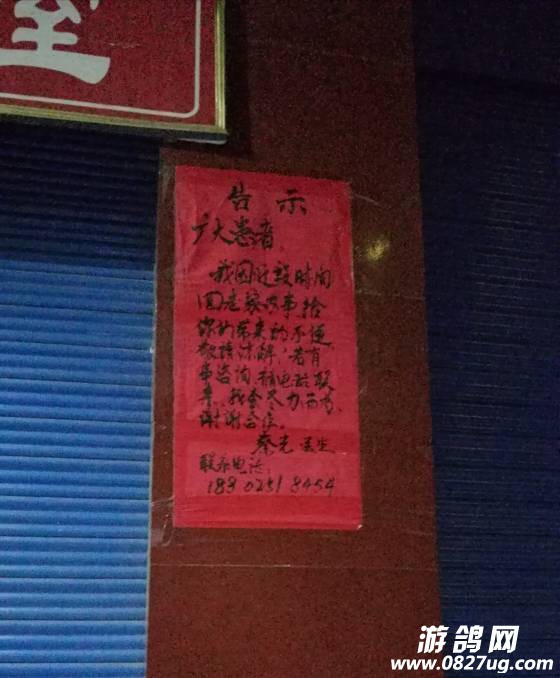 室
告示
广大患者
我因近段时间
回老家办事,给
你们带来的不便
敬请谅解,若有
事咨询,请电话联
系,我会尽力而为,
谢谢合作。
秦光 医生
联系电话:
189 0251 8454
游鸽网
www.0827ug.com